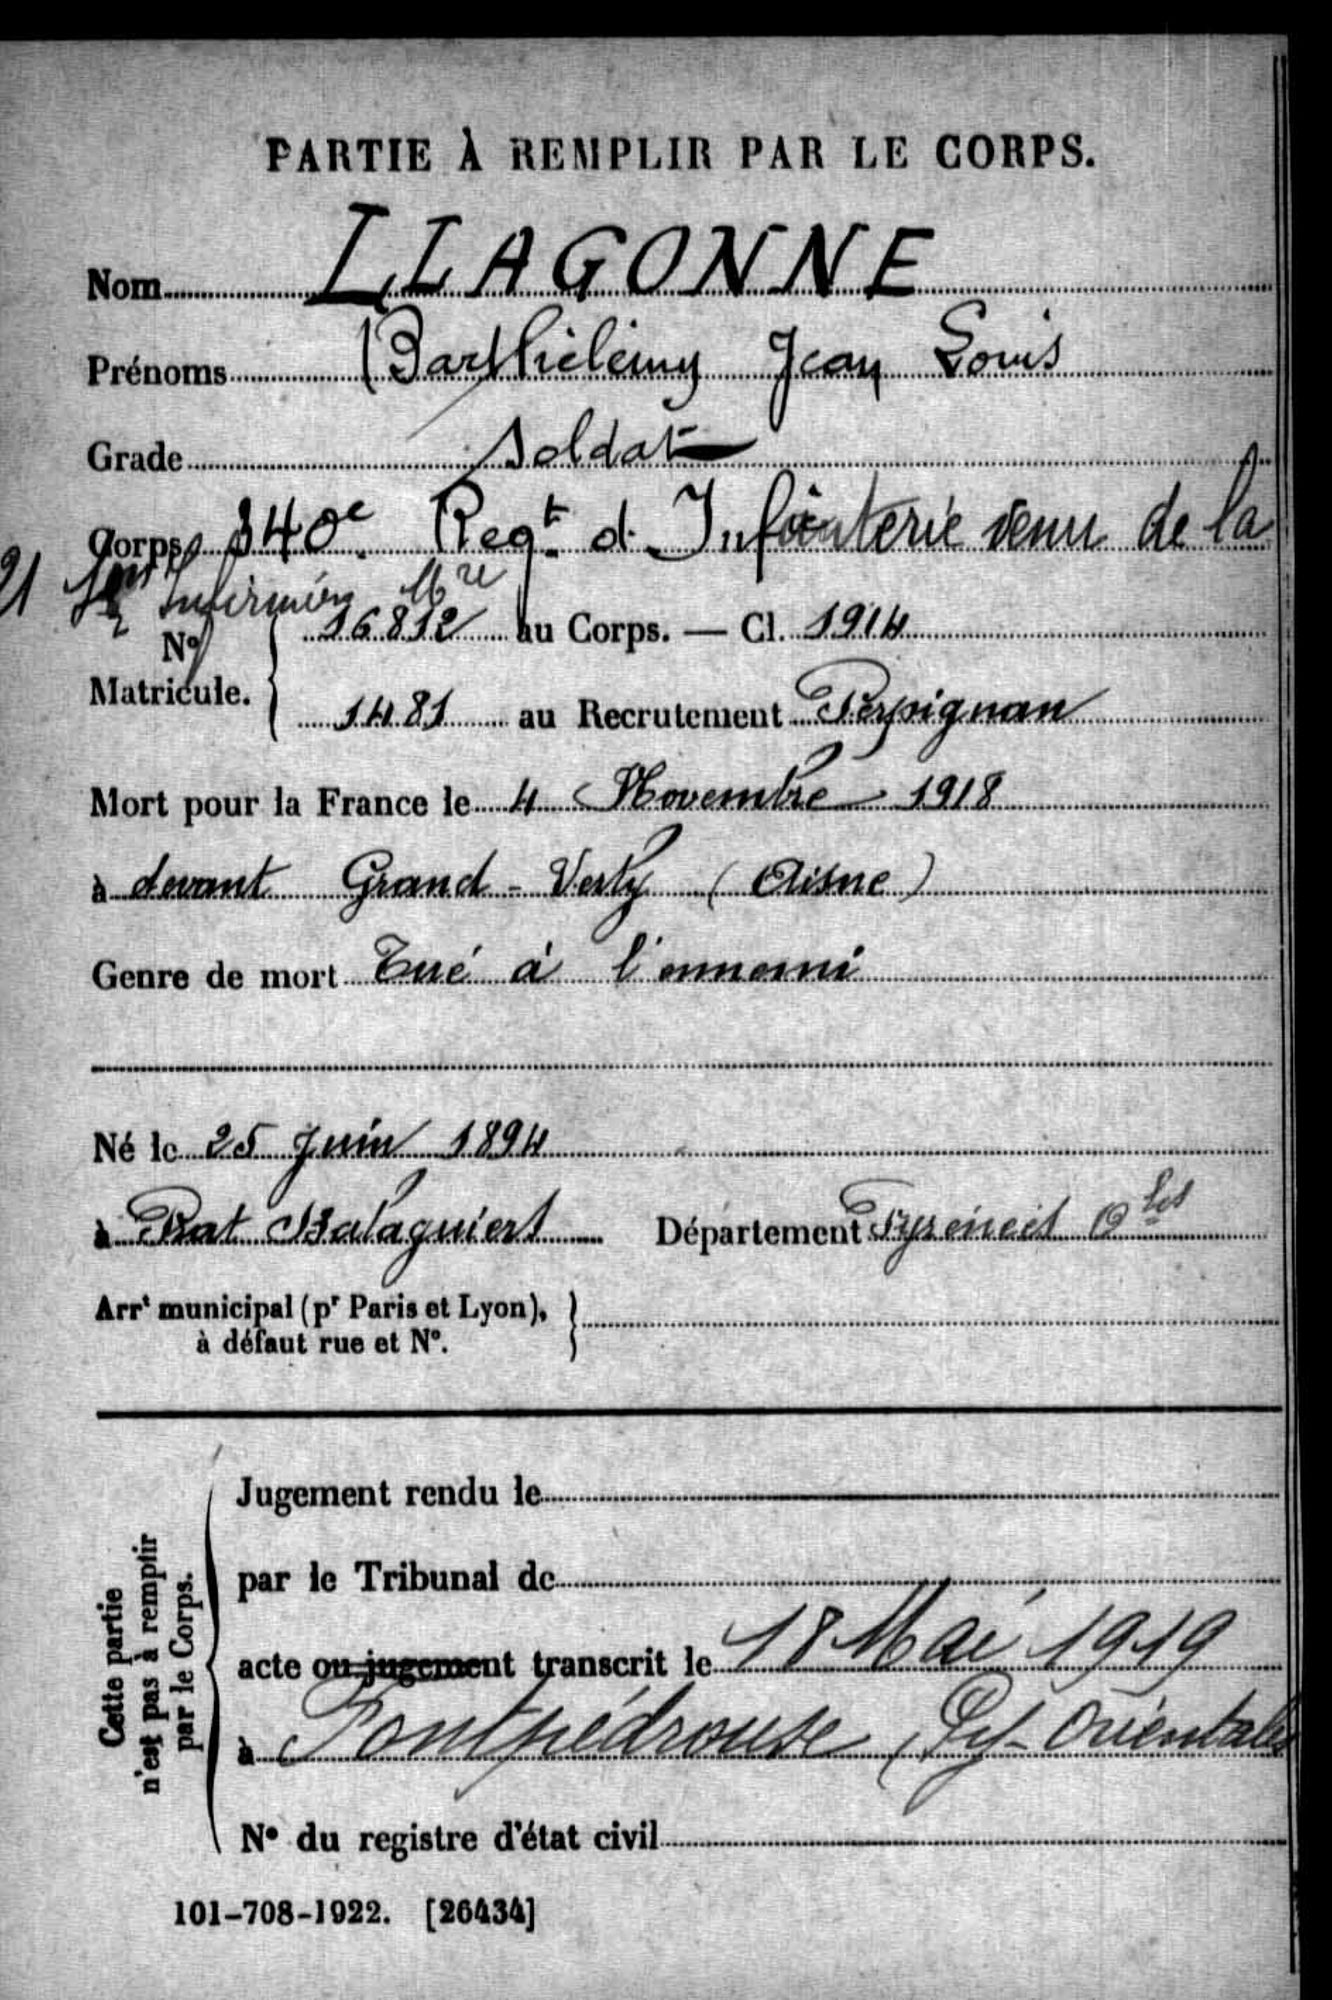 PARTIE À REMPLIR PAR LE CORPS.
Nom LLAGONNE
Prénoms Barthélémy Jean Louis
Grade Soldat
Corps 340e Regt d'Infanterie venu de la
21 Son Infirmiers Mre
No Matricule. 16812 au Corps. — Cl. 1914
1481 au Recrutement Perpignan
Mort pour la France le 4 Novembre 1918
à devant Grand-Verly (Aisne)
Genre de mort Tué à l'ennemi
Né le 25 Juin 1894
à Prat Balaguiert Département Pyrénées Oles
Arrt municipal (pr Paris et Lyon),
à défaut rue et No.
Cette partie
n'est pas à remplir
par le Corps.
Jugement rendu le
par le Tribunal de
acte ou jugement transcrit le 18 Mai 1919
à Fontpédrouse, Pyr-Orientales
No du registre d'état civil
101-708-1922. [26434]